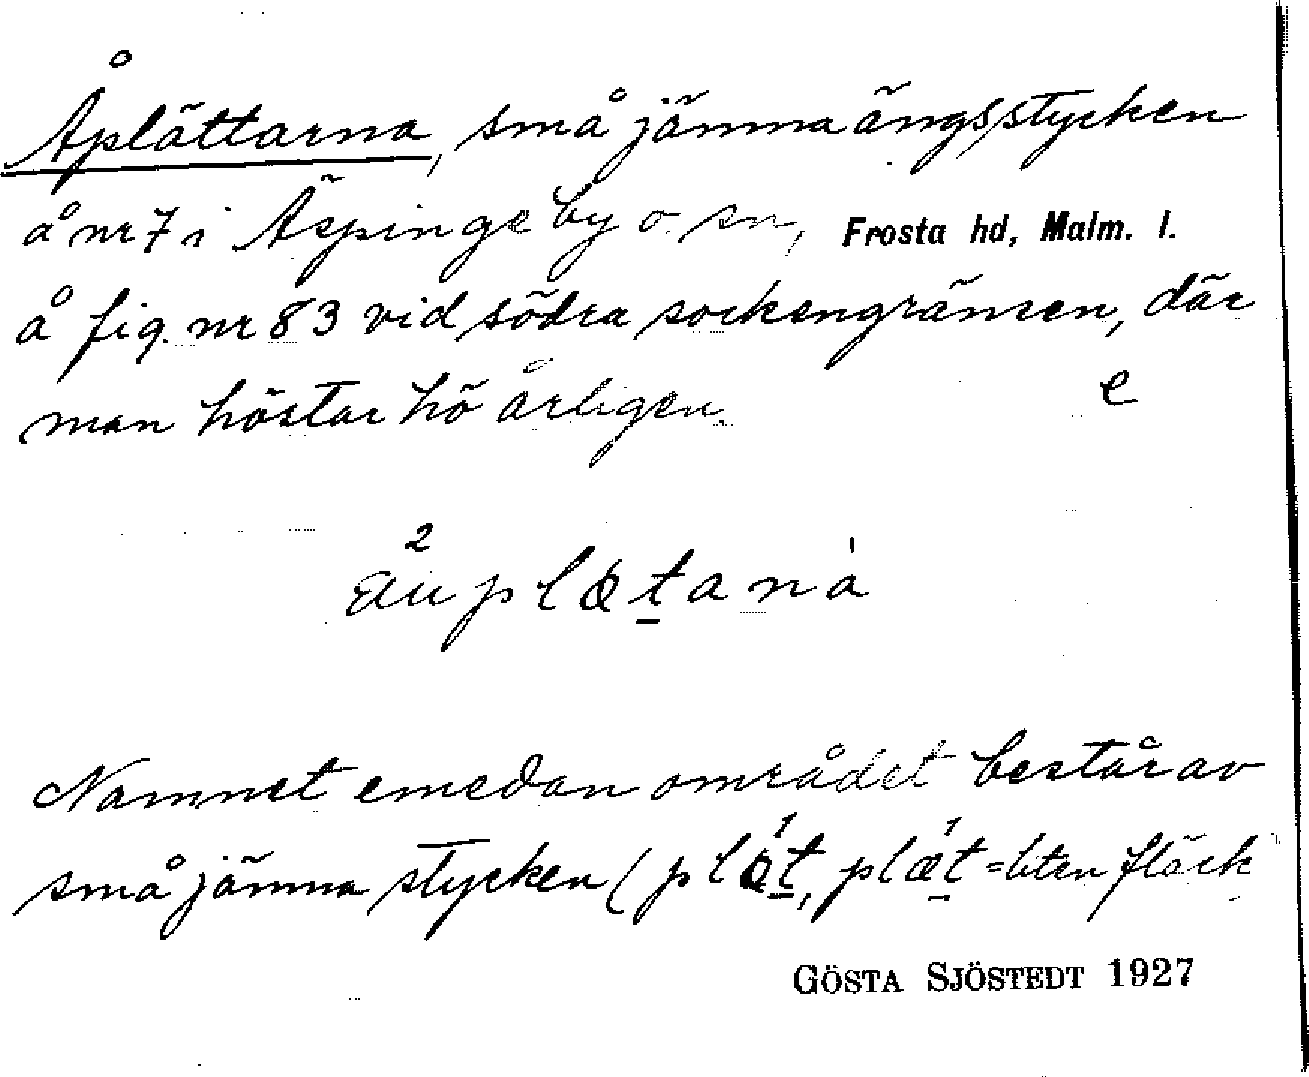 Åplättarna, små jämna ängsstycken
å nr 7 i Äspinge by o. sn, Frosta hd, Malm. l.
å fig. nr 83 vid södra sockengränsen, där
man höstar hö årligen. e
²äuplætanà
Namnet emedan området består av
små jämna stycken (plæ̀t, plæ̀t = liten fläck
GÖSTA SJÖSTEDT 1927